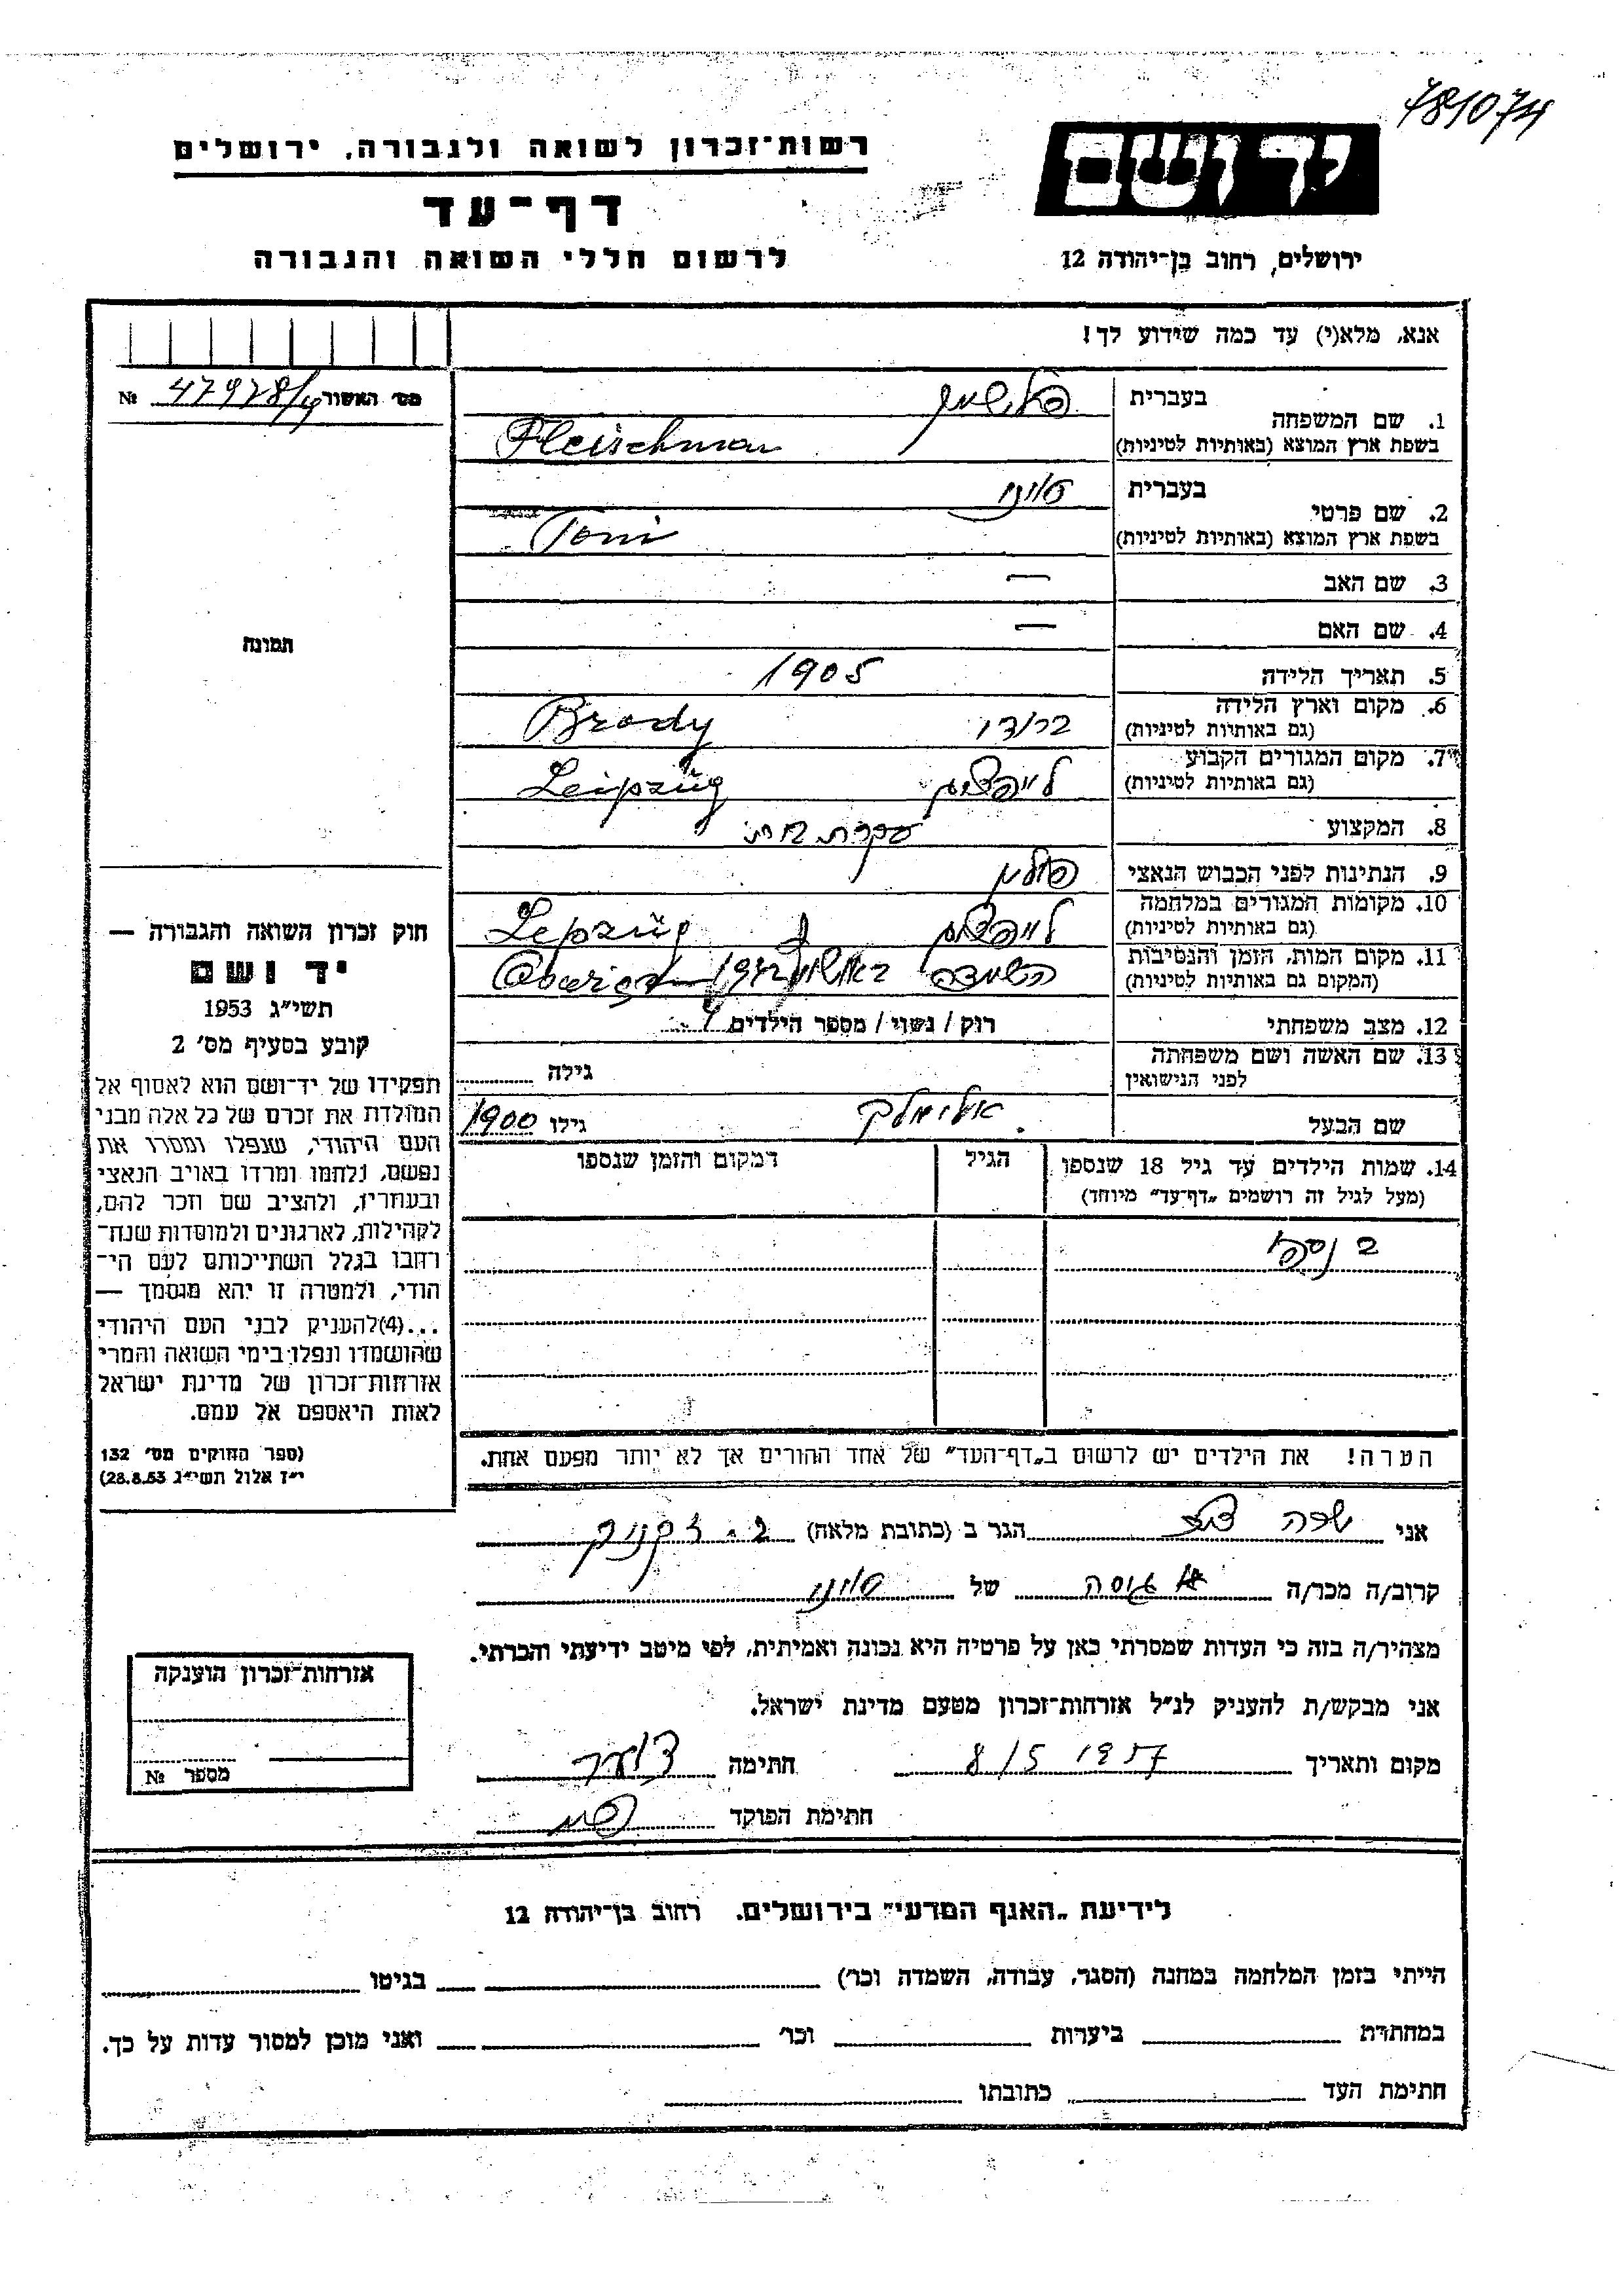 781074
יד ושם
ירושלים, רחוב בן־יהודה 12
רשות־זכרון לשואה ולגבורה, ירושלים
דף־עד
לרשום חללי השואה והגבורה
אנא, מלא(י) עד כמה שידוע לך!
מס׳ האשור 47978/ № 
1. שם המשפחה
בעברית פליישמן
בשפת ארץ המוצא (באותיות לטיניות) Fleischman
2. שם פרטי
בעברית טוני
בשפת ארץ המוצא (באותיות לטיניות) Toni
3. שם האב —
4. שם האם —
5. תאריך הלידה 1905
6. מקום וארץ הלידה ברודי Brody
(גם באותיות לטיניות)
7. מקום המגורים הקבוע לייפציג Leipzig
(גם באותיות לטיניות)
8. המקצוע עקרת בית
9. הנתינות לפני הכבוש הנאצי פולין
10. מקומות המגורים במלחמה לייפציג Lepzig
(גם באותיות לטיניות)
11. מקום המות, הזמן והנסיבות
(המקום גם באותיות לטיניות)
12. מצב משפחתי רוק / נשוי / מספר הילדים 4
13. שם האשה ושם משפחתה
לפני הנישואין
גילה
שם הבעל אלימלך גילו 1900
14. שמות הילדים עד גיל 18 שנספו הגיל המקום והזמן שנספו
(מעל לגיל זה רושמים „דף־עד״ מיוחד)
2 נספו
הערה! את הילדים יש לרשום ב„דף־העד״ של אחד ההורים אך לא יותר מפעם אחת.
אני שרה הגר ב (כתובת מלאה)
קרוב/ה מכר/ה גיסה של טוני
מצהיר/ה בזה כי העדות שמסרתי כאן על פרטיה היא נכונה ואמיתית, לפי מיטב ידיעתי והכרתי.
אני מבקש/ת להעניק לנ״ל אזרחות־זכרון מטעם מדינת ישראל.
מקום ותאריך 8/5 1957 חתימה
חתימת הפוקד
תמונה
חוק זכרון השואה והגבורה —
יד ושם
תשי״ג 1953
קובע בסעיף מס׳ 2
תפקידו של יד־ושם הוא לאסוף אל
המולדת את זכרם של כל אלה מבני
העם היהודי, שנפלו ומסרו את
נפשם, נלחמו ומרדו באויב הנאצי
ובעוזריו, ולהציב שם וזכר להם,
לקהילות, לארגונים ולמוסדות שנח־
רבו בגלל השתייכותם לעם הי־
הודי, ולמטרה זו יהא מוסמך —
...(4)להעניק לבני העם היהודי
שהושמדו ונפלו בימי השואה והמרי
אזרחות־זכרון של מדינת ישראל
לאות היאספם אל עמם.
(ספר החוקים מס׳ 132
י״ז אלול תשי״ג 28.8.53)
אזרחות־זכרון הוענקה
מספר №
לידיעת „האגף המדעי״ בירושלים. רחוב בן־יהודה 12
הייתי בזמן המלחמה במחנה (הסגר, עבודה, השמדה וכו׳) בגיטו
במחתרת ביערות וכו׳ ואני מוכן למסור עדות על כך.
חתימת העד כתובתו